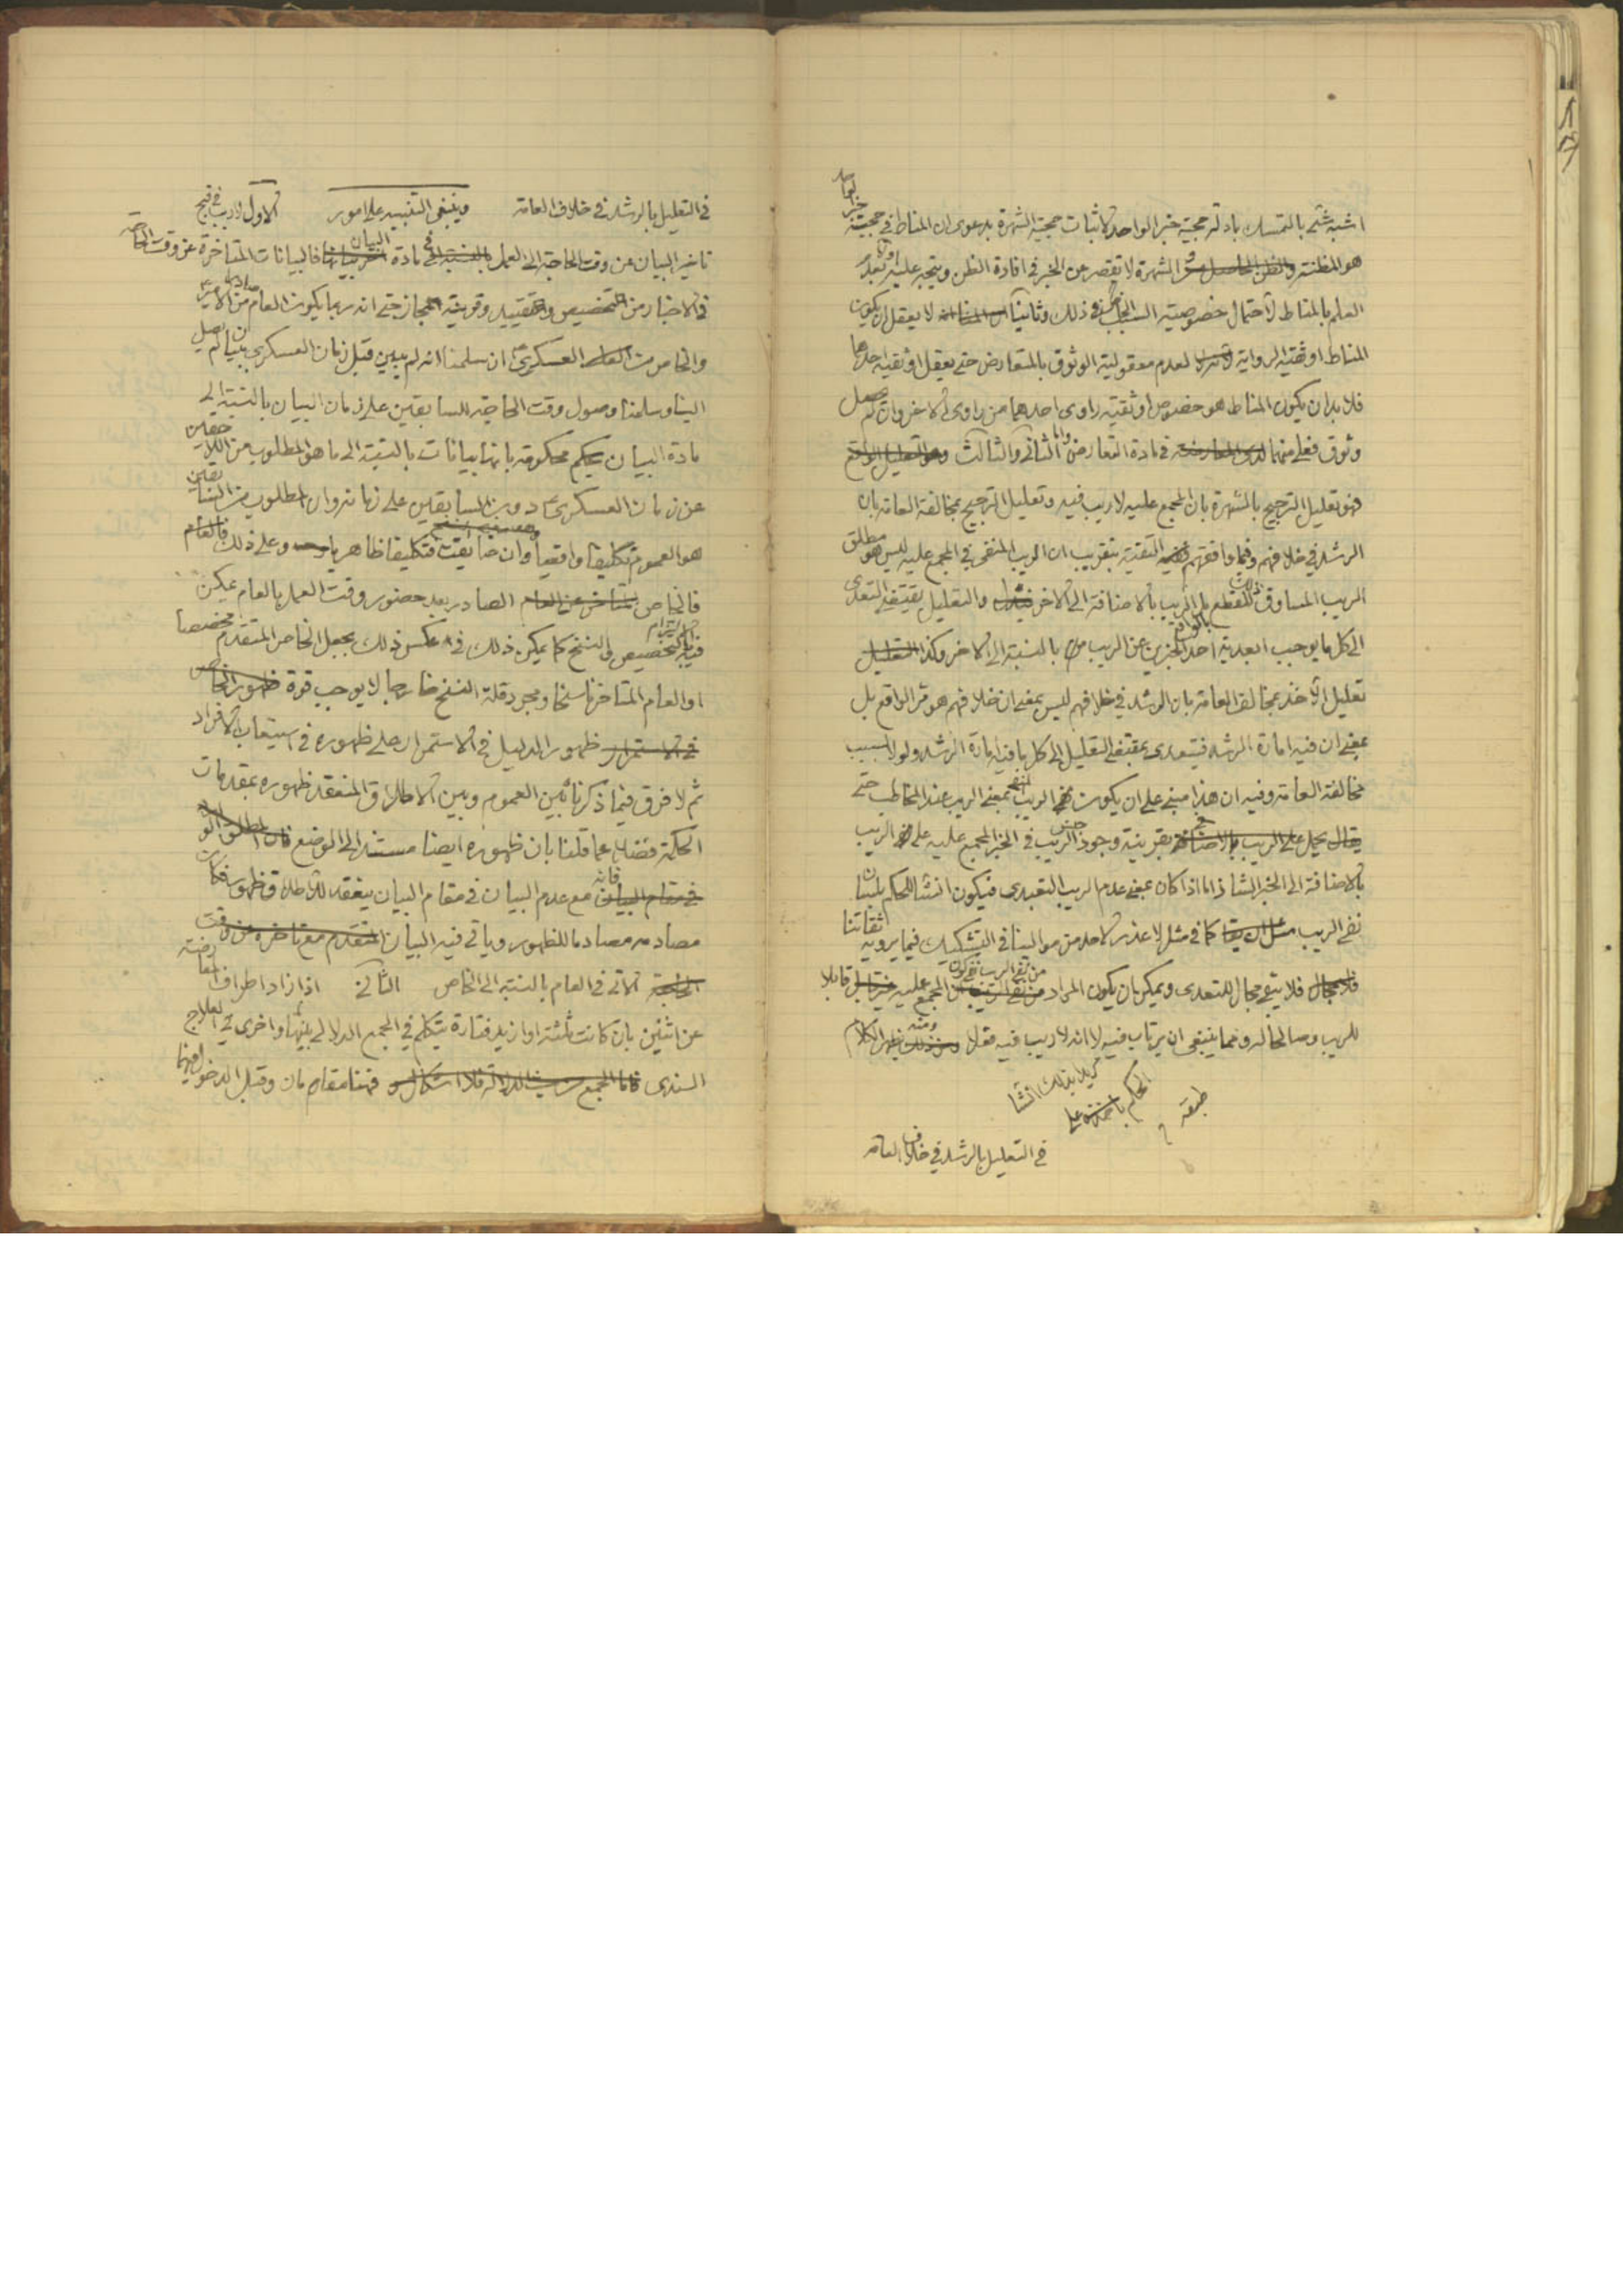 اشبه شئ بالتمسك بادلة حجية خبر الواحد لاثبات حجية الشهرة بدعوى ان المناط في حجية خبر الواحد
هو المظنة والشهرة لا تقصر عن الخبر في افادة الظن ويتجه عليه اولا بعد
العلم بالمناط لاحتمال خصوصية السبب الخاص في ذلك وثانيا لا يعقل ان يكون
المناط اوثقية الرواية لعدم معقولية الوثوق بالمتعارضين حتى يعقل اوثقية احدهما
فلا بد ان يكون المناط هو خصوص اوثقية راوى احدهما من راوى الاخر وان لم يحصل
وثوق فعلى منهما في مادة التعارض واما الثاني والثالث
فهو تعليل الترجيح بالشهرة بان المجمع عليه لا ريب فيه وتعليل الترجيح بمخالفة العامة بان
الرشد في خلافهم وفيما وافقهم التقية بتقريب ان الريب المنفى في المجمع عليه ليس هو مطلق
الريب المساوق ذلك للقطع بل الريب بالاضافة الى الاخر والتعليل يقتضى التعدى
الى كل ما يوجب ابعدية احد الخبرين عن الريب بالنسبة الى الاخر وكذا
تعليل الاخذ بمخالف العامة بان الرشد في خلافهم ليس بمعنى ان خلافهم هو الواقع بل
بمعنى ان فيه امارة الرشد فيتعدى بمقتضى التعليل الى كل ما فيه امارة الرشد ولو لا بسبب
مخالفة العامة وفيه ان هذا مبنى على ان يكون الريب المنفى بمعنى الريب عند المخاطب حتى
يحمل على الريب بقرينة وجود جنس الريب في الخبر المجمع عليه على الريب
بالاضافة الى الخبر الشاذ اما اذا كان بمعنى عدم الريب التعبدى فيكون انشاء للحكم بلسان
نفى الريب كما في مثل لا عذر لاحد من موالينا في التشكيك فيما يرويه ثقاتنا
فلا يبقى مجال للتعدى ويمكن ان يكون المراد من نفى الريب المجمع عليه قابلا
للريب وصالحا له ومما ينبغى ان يرتاب فيه لا انه لا ريب فيه فعلا ومنه يظهر الكلام
في التعليل بالرشد في خلاف العامة
في التعليل بالرشد في خلاف العامة وينبغى التنبيه على امور الاول لا ريب في قبح
تاخير البيان عن وقت الحاجة الى العمل في مادة البيان فالبيانات المتاخرة عن وقت الحاجة
في الاخبار من التخصيص والتقييد وقرينة المجاز حتى انه ربما يكون العام صادرا من الامير
والخاص من العسكرى ان سلمنا انه لم يبين قبل زمان العسكرى ببيان لم يصل
الينا وسلمنا وصول وقت الحاجة السابقين على زمان البيان بالنسبة الى
مادة البيان محكومة بانها بيانات بالنسبة الى ما هو المطلوب من اللاحقين
عن زمان العسكرى دون السابقين على زمانه وان المطلوب من السابقين
هو العموم تكليفا واقعيا وان ضايقت فتكليفا ظاهريا وعلى ذلك فالعام
فالخاص الصادر بعد حضور وقت العمل بالعام يمكن
فيه التزام التخصيص والنسخ كما يمكن ذلك في عكس ذلك بجعل الخاص المتقدم مخصصا
او العام المتاخر ناسخا ومجرد قلة النسخ خارجا لا يوجب قوة
ظهور الدليل في الاستمرار على ظهوره في استيعاب الافراد
ثم لا فرق فيما ذكرناه بين العموم وبين الاطلاق المنعقد ظهوره بمقدمات
الحكمة فضلا عما قلنا بان ظهوره ايضا مستند الى الوضع
فانه مع عدم البيان في مقام البيان ينعقد للاطلاق ظهور فكان
مصادمه مصادما للظهور وياتي فيه البيان
الاتى في العام بالنسبة الى الخاص الثانى اذا زاد اطراف المعارضة
عن اثنين بان كانت ثلثة او ازيد فتارة يتكلم في الجمع الدلالى بينها واخرى في العلاج
السندى فهنا مقامان وقبل الدخول فيهما